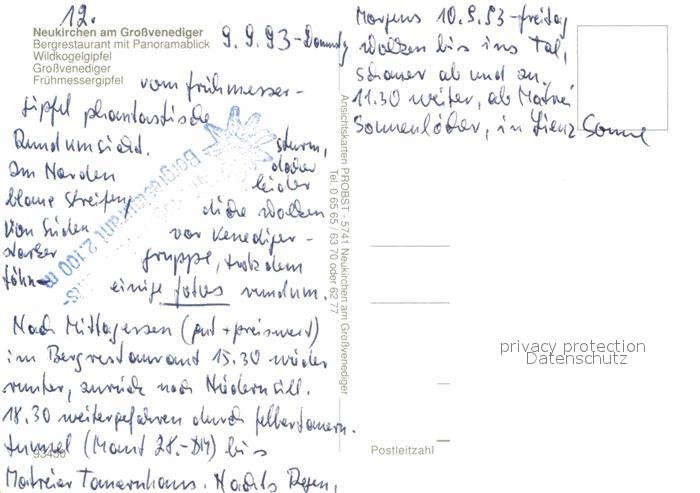 12.
Neukirchen am Großvenediger
Bergrestaurant mit Panoramablick
Wildkogelgipfel
Großvenediger
Frühmessergipfel
9.9.93-Donnstg
vom Frühmesser-
gipfel phantastische
Rundumsicht.
Am Norden
blaue Streifen,
von Süden
starker
Föhn-
sturm,
daher
leider
dicke Wolken
vor Venediger-
gruppe, trotzdem
einige Fotos rundum.
Nach Mittagessen (gut + preiswert)
im Bergrestaurant 15.30 wieder
runter, zurück nach Niedernsill.
18.30 weitergefahren durch Felbertauern-
tunnel (Maut 28.-DM) bis
Matreier Tauernhaus. Nachts Regen,
93450
Bergrestaurant 2.100 m
Ansichtskarten PROBST - 5741 Neukirchen am Großvenediger
Tel. 0 65 65 / 63 70 oder 62 77
Morgens 10.9.93-Freitag
Wolken bis ins Tal,
Schauer ab und zu.
11.30 weiter, ab Matrei
Sonnenlöcher, in Lienz Sonne
privacy protection
Datenschutz
Postleitzahl